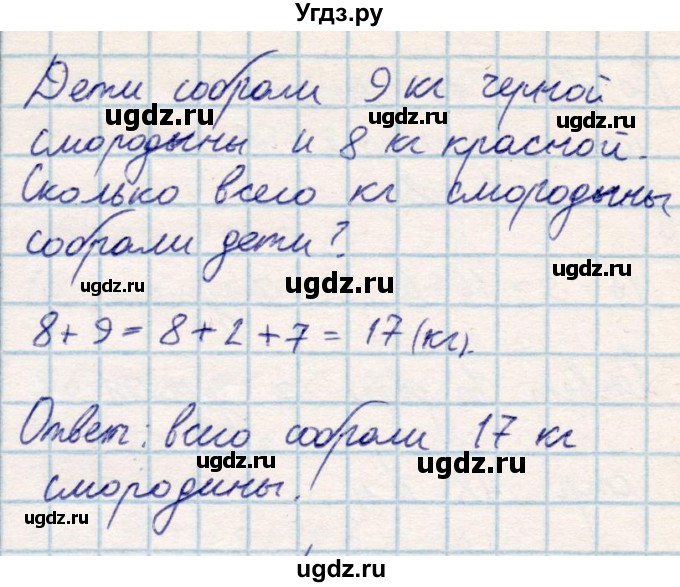 Угдз.ру
Дети собрали 9 кг черной
ugdz.ru ugdz.ru ugdz.ru
смородыны и 8 кг красной.
Сколько всего кг смородыны
ugdz.ru ugdz.ru
собрали дети?
ugdz.ru ugdz.ru ugdz.ru
8+9=8+2+7=17(кг).
Ответ: всего собрали 17 кг
ugdz.ru ugdz.ru
смородины.
ugdz.ru
ugdz.ru